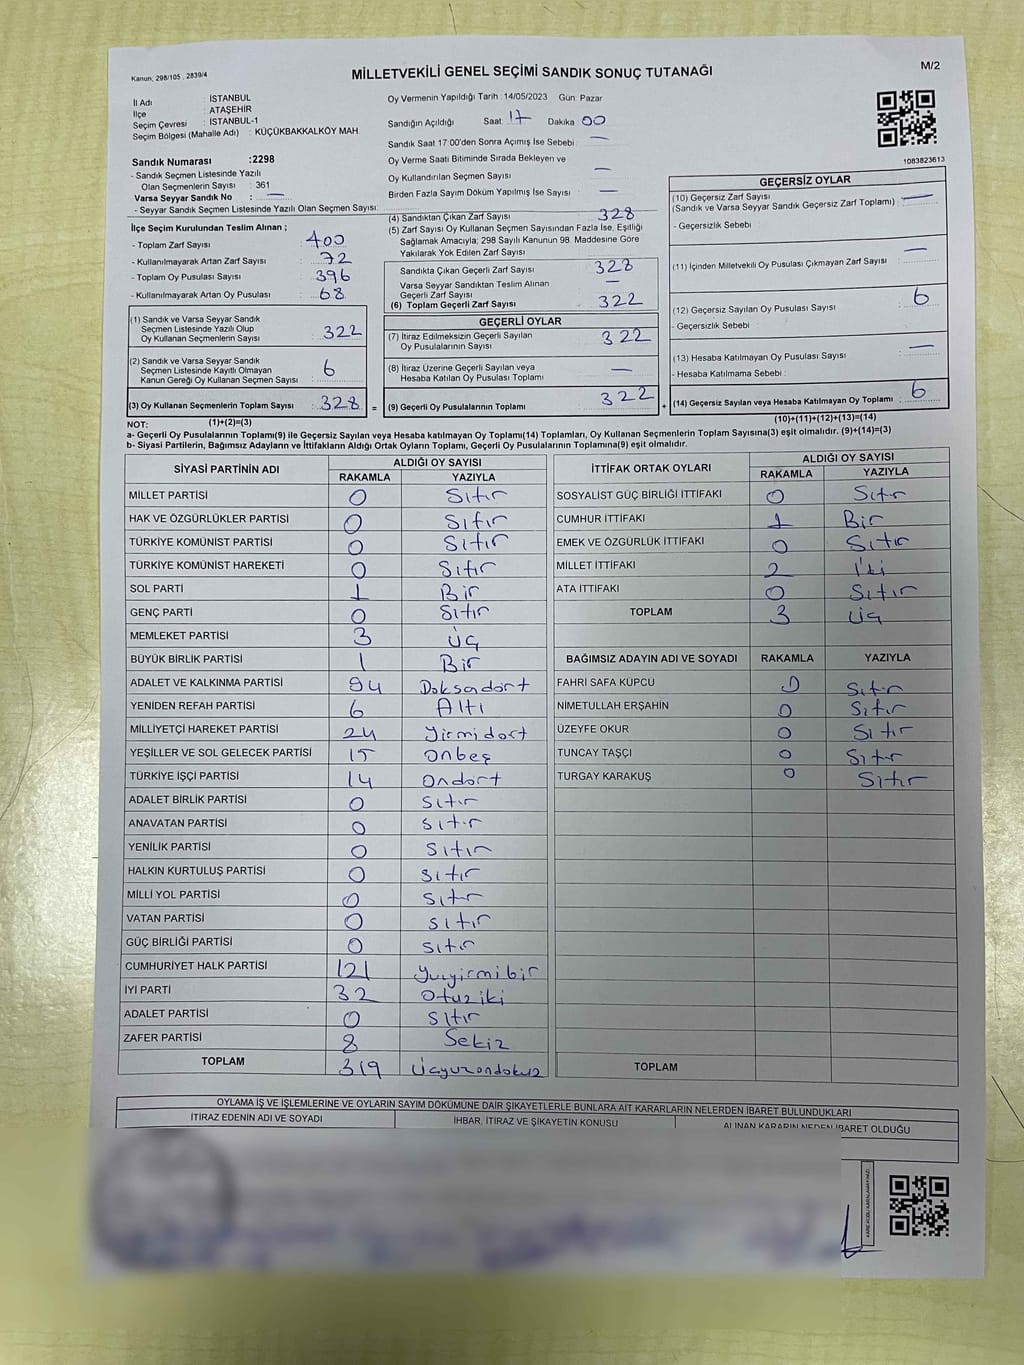 Kanun; 298/105 , 2839/4
MİLLETVEKİLİ GENEL SEÇİMİ SANDIK SONUÇ TUTANAĞI
M/2
İl Adı : İSTANBUL
İlçe : ATAŞEHİR
Seçim Çevresi : İSTANBUL-1
Seçim Bölgesi (Mahalle Adı) : KÜÇÜKBAKKALKÖY MAH.
Sandık Numarası :2298
- Sandık Seçmen Listesinde Yazılı
Olan Seçmenlerin Sayısı : 361
Varsa Seyyar Sandık No : —
- Seyyar Sandık Seçmen Listesinde Yazılı Olan Seçmen Sayısı:
İlçe Seçim Kurulundan Teslim Alınan ;
- Toplam Zarf Sayısı 400
- Kullanılmayarak Artan Zarf Sayısı : 72
- Toplam Oy Pusulası Sayısı : 396
- Kullanılmayarak Artan Oy Pusulası : 68
(1) Sandık ve Varsa Seyyar Sandık
Seçmen Listesinde Yazılı Olup
Oy Kullanan Seçmenlerin Sayısı : 322
(2) Sandık ve Varsa Seyyar Sandık
Seçmen Listesinde Kayıtlı Olmayan
Kanun Gereği Oy Kullanan Seçmen Sayısı : 6
(3) Oy Kullanan Seçmenlerin Toplam Sayısı : 328 =
(1)+(2)=(3)
Oy Vermenin Yapıldığı Tarih : 14/05/2023 Gün: Pazar
Sandığın Açıldığı Saat: 17 Dakika: 00
Sandık Saat 17:00'den Sonra Açımış İse Sebebi : —
Oy Verme Saati Bitiminde Sırada Bekleyen ve
Oy Kullandırılan Seçmen Sayısı : —
Birden Fazla Sayım Döküm Yapılmış İse Sayısı : —
(4) Sandıktan Çıkan Zarf Sayısı : 328
(5) Zarf Sayısı Oy Kullanan Seçmen Sayısından Fazla İse, Eşitliği
Sağlamak Amacıyla; 298 Sayılı Kanunun 98. Maddesine Göre
Yakılarak Yok Edilen Zarf Sayısı :
Sandıkta Çıkan Geçerli Zarf Sayısı : 328
Varsa Seyyar Sandıktan Teslim Alınan
Geçerli Zarf Sayısı : —
(6) Toplam Geçerli Zarf Sayısı : 322
GEÇERLİ OYLAR
(7) İtiraz Edilmeksizin Geçerli Sayılan
Oy Pusulalarının Sayısı : 322
(8) İtiraz Üzerine Geçerli Sayılan veya
Hesaba Katılan Oy Pusulası Toplamı : —
(9) Geçerli Oy Pusulalarının Toplamı : 322 +
1083823613
GEÇERSİZ OYLAR
(10) Geçersiz Zarf Sayısı : —
(Sandık ve Varsa Seyyar Sandık Geçersiz Zarf Toplamı)
- Geçersizlik Sebebi :
(11) İçinden Milletvekili Oy Pusulası Çıkmayan Zarf Sayısı : —
(12) Geçersiz Sayılan Oy Pusulası Sayısı : 6
- Geçersizlik Sebebi :
(13) Hesaba Katılmayan Oy Pusulası Sayısı : —
- Hesaba Katılmama Sebebi :
(14) Geçersiz Sayılan veya Hesaba Katılmayan Oy Toplamı : 6
(10)+(11)+(12)+(13)=(14)
NOT:
a- Geçerli Oy Pusulalarının Toplamı(9) ile Geçersiz Sayılan veya Hesaba katılmayan Oy Toplamı(14) Toplamları, Oy Kullanan Seçmenlerin Toplam Sayısına(3) eşit olmalıdır. (9)+(14)=(3)
b- Siyasi Partilerin, Bağımsız Adayların ve İttifakların Aldığı Ortak Oyların Toplamı, Geçerli Oy Pusulalarının Toplamına(9) eşit olmalıdır.
SİYASİ PARTİNİN ADI ALDIĞI OY SAYISI
RAKAMLA YAZIYLA
MİLLET PARTİSİ 0 Sıfır
HAK VE ÖZGÜRLÜKLER PARTİSİ 0 Sıfır
TÜRKİYE KOMÜNİST PARTİSİ 0 Sıfır
TÜRKİYE KOMÜNİST HAREKETİ 0 Sıfır
SOL PARTİ 1 Bir
GENÇ PARTİ 0 Sıfır
MEMLEKET PARTİSİ 3 Üç
BÜYÜK BİRLİK PARTİSİ 1 Bir
ADALET VE KALKINMA PARTİSİ 94 Doksandört
YENİDEN REFAH PARTİSİ 6 Altı
MİLLİYETÇİ HAREKET PARTİSİ 24 Yirmidört
YEŞİLLER VE SOL GELECEK PARTİSİ 15 Onbeş
TÜRKİYE İŞÇİ PARTİSİ 14 Ondört
ADALET BİRLİK PARTİSİ 0 Sıfır
ANAVATAN PARTİSİ 0 Sıfır
YENİLİK PARTİSİ 0 Sıfır
HALKIN KURTULUŞ PARTİSİ 0 Sıfır
MİLLİ YOL PARTİSİ 0 Sıfır
VATAN PARTİSİ 0 Sıfır
GÜÇ BİRLİĞİ PARTİSİ 0 Sıfır
CUMHURİYET HALK PARTİSİ 121 Yüzyirmibir
İYİ PARTİ 32 Otuziki
ADALET PARTİSİ 0 Sıfır
ZAFER PARTİSİ 8 Sekiz
TOPLAM 319 Üçyüzondokuz
İTTİFAK ORTAK OYLARI ALDIĞI OY SAYISI
RAKAMLA YAZIYLA
SOSYALİST GÜÇ BİRLİĞİ İTTİFAKI 0 Sıfır
CUMHUR İTTİFAKI 1 Bir
EMEK VE ÖZGÜRLÜK İTTİFAKI 0 Sıfır
MİLLET İTTİFAKI 2 İki
ATA İTTİFAKI 0 Sıfır
TOPLAM 3 Üç
BAĞIMSIZ ADAYIN ADI VE SOYADI RAKAMLA YAZIYLA
FAHRİ SAFA KÜPCÜ 0 Sıfır
NİMETULLAH ERŞAHİN 0 Sıfır
ÜZEYFE OKUR 0 Sıfır
TUNCAY TAŞÇI 0 Sıfır
TURGAY KARAKUŞ 0 Sıfır
TOPLAM
OYLAMA İŞ VE İŞLEMLERİNE VE OYLARIN SAYIM DÖKÜMÜNE DAİR ŞİKAYETLERLE BUNLARA AİT KARARLARIN NELERDEN İBARET BULUNDUKLARI
İTİRAZ EDENİN ADI VE SOYADI İHBAR, İTİRAZ VE ŞİKAYETİN KONUSU ALINAN KARARIN NEDEN İBARET OLDUĞU